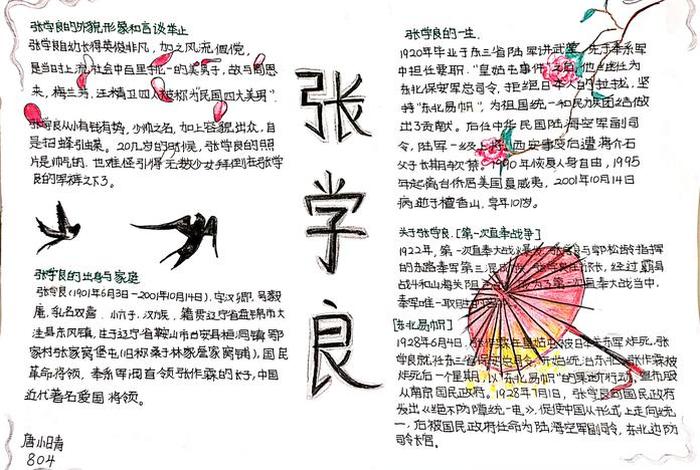 张学良的外貌形象和言谈举止
张学良自幼长得英俊非凡，加之风流倜傥，
是当时上流社会中百里挑一的美男子，故与周恩
来，梅兰芳，汪精卫四人被称为"民国四大美男"。
张学良从小有钱有势，少帅之名，加上容貌出众，自
是招蜂引蝶。20几岁的时候，张学良的照
片是帅气的，也难怪引得无数少女拜倒在张学
良的军裤之下了。
张学良的出身与家庭
张学良(1901年6月3日-2001年10月14日)，字汉卿，号毅
庵，乳名双喜、小六子，汉族，籍贯辽宁省盘锦市大
洼县东风镇，生于辽宁省鞍山市台安县桓洞镇鄂
家村张家窝堡屯(旧称桑子林詹家窝铺)，国民
革命将领，奉系军阀首领张作霖的长子，中国
近代著名爱国将领。
唐小晴
804
张学良
张学良的一生.
1920年毕业于东三省陆军讲武堂，先于奉系军
中担任要职。"皇姑屯事件"之后，他继任为
东北保安军总司令，拒绝日本人的拉拢，坚
持"东北易帜"，为祖国统一和民族团结做
出了贡献。后任中华民国陆海空军副司
令，陆军一级上将。西安事变后遭蒋介石
父子长期再次禁。1990年恢复人身自由，1995
年起离台侨居美国夏威夷，2001年10月14日
病逝于檀香山，享年101岁。
关于张学良.[第一次直奉战争]
1922年，第一次直奉大战爆发，张学良与郭松龄指挥
战斗和山海关阻击
奉军唯一取胜的
[东北易帜]
1928年6月4日，张作霖在皇姑屯被日本关东军炸死，张
学良就任东三省保安总司令，
炸死后一个星期，以"东北易帜"的果断行动，宣布服
从南京国民政府。1928年7月1日，张学良向国民政府
发出《绝不妨碍统一电》，促使中国从形式上走向统
一，后被国民政府任命为陆海空军副司令，东北边防
司令长官。